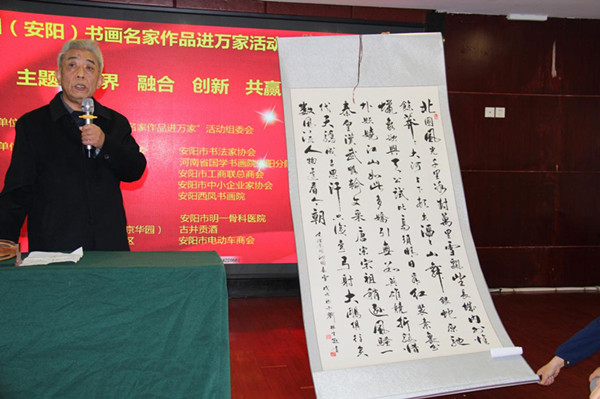 （安阳）书画名家作品进万家活动
主题 界 融合 创新 共赢
单位
名家作品进万家”活动组委会
单位
安阳市书法家协会
河南省国学书画院 阳分
安阳市工商联总商会
安阳市中小企业家协会
安阳西风书画院
安阳市明一骨科医院
京华园） 古井贡酒
区 安阳市电动车商会
北國風光千里冰封萬里雪飄望長城内外惟
餘莽莽大河上下頓失滔滔山舞銀蛇原馳
蠟象欲與天公試比高須晴日看紅裝素裹分
外妖嬈江山如此多嬌引無數英雄競折腰惜
秦皇漢武略輸文采唐宗宋祖稍遜風騷一
代天驕成吉思汗只識彎弓射大鵰俱往矣
數風流人物還看今朝